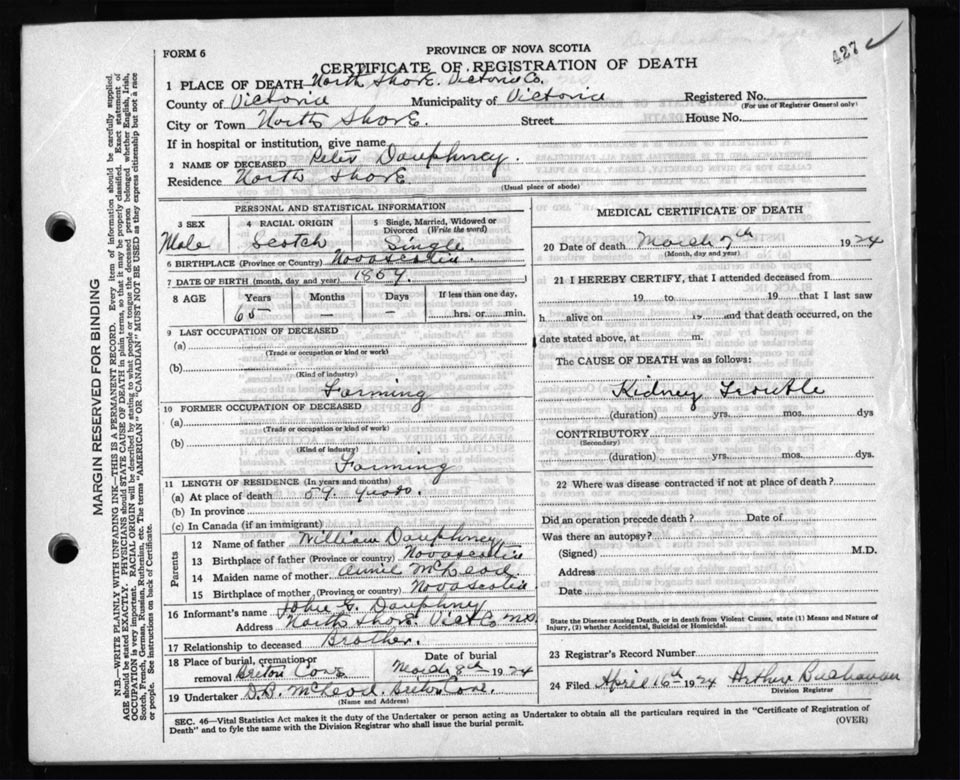 427 ✓
FORM 6
PROVINCE OF NOVA SCOTIA
CERTIFICATE OF REGISTRATION OF DEATH
1 PLACE OF DEATH North Shore. Victoria Co.
County of Victoria Municipality of Victoria Registered No.
(For use of Registrar General only)
City or Town North Shore. Street House No.
If in hospital or institution, give name
2 NAME OF DECEASED Peter Dauphney.
Residence North Shore.
(Usual place of abode)
PERSONAL AND STATISTICAL INFORMATION
3 SEX 4 RACIAL ORIGIN 5 Single, Married, Widowed or Divorced (Write the word)
Male Scotch Single
6 BIRTHPLACE (Province or Country) Nova Scotia.
7 DATE OF BIRTH (month, day and year) 1859.
8 AGE Years Months Days If less than one day,
65 — — hrs. or min.
9 LAST OCCUPATION OF DECEASED
(a)
(Trade or occupation or kind or work)
(b)
(Kind of industry)
Farming
10 FORMER OCCUPATION OF DECEASED
(a)
(Trade or occupation or kind of work)
(b)
(Kind of industry)
Farming
11 LENGTH OF RESIDENCE (In years and months)
(a) At place of death 59. years.
(b) In province
(c) In Canada (if an immigrant)
Parents
12 Name of father William Dauphney
13 Birthplace of father (Province or country) Nova Scotia
14 Maiden name of mother Annie McLeod
15 Birthplace of mother (Province or country) Nova Scotia
16 Informant's name John G. Dauphney
Address North Shore Vict Co N.S.
17 Relationship to deceased Brother.
18 Place of burial, cremation or removal Breton Cove Date of burial March 8th 1924
19 Undertaker D.B. McLeod. Breton Cove.
(Name and Address)
MEDICAL CERTIFICATE OF DEATH
20 Date of death March 7th 1924
(Month, day and year)
21 I HEREBY CERTIFY, that I attended deceased from
19 to 19 that I last saw
h alive on 19 and that death occurred, on the
date stated above, at m.
The CAUSE OF DEATH was as follows:
Kidney Trouble
(duration) yrs. mos. dys
CONTRIBUTORY
(Secondary)
(duration) yrs. mos. dys.
22 Where was disease contracted if not at place of death?
Did an operation precede death? Date of
Was there an autopsy?
(Signed) M.D.
Address
Date
State the Disease causing Death, or in death from Violent Causes, state (1) Means and Nature of
Injury, (2) whether Accidental, Suicidal or Homicidal.
23 Registrar's Record Number
24 Filed April 16th 1924 Arthur Buchanan
Division Registrar
SEC. 46—Vital Statistics Act makes it the duty of the Undertaker or person acting as Undertaker to obtain all the particulars required in the "Certificate of Registration of
Death" and to fyle the same with the Division Registrar who shall issue the burial permit. (OVER)
MARGIN RESERVED FOR BINDING
N.B.—WRITE PLAINLY WITH UNFADING INK—THIS IS A PERMANENT RECORD. Every item of information should be carefully supplied.
AGE should be stated EXACTLY. PHYSICIANS should STATE CAUSE OF DEATH in plain terms, so that it may be properly classified. Exact statement of
OCCUPATION is very important. RACIAL ORIGIN will be described by stating to what people or tongue the deceased person belonged whether English, Irish,
Scotch, French, German, Russian, Ruthenian, etc. The terms "AMERICAN" OR "CANADIAN" MUST NOT BE USED as they express citizenship but not a race
or people. See instructions on back of Certificate.